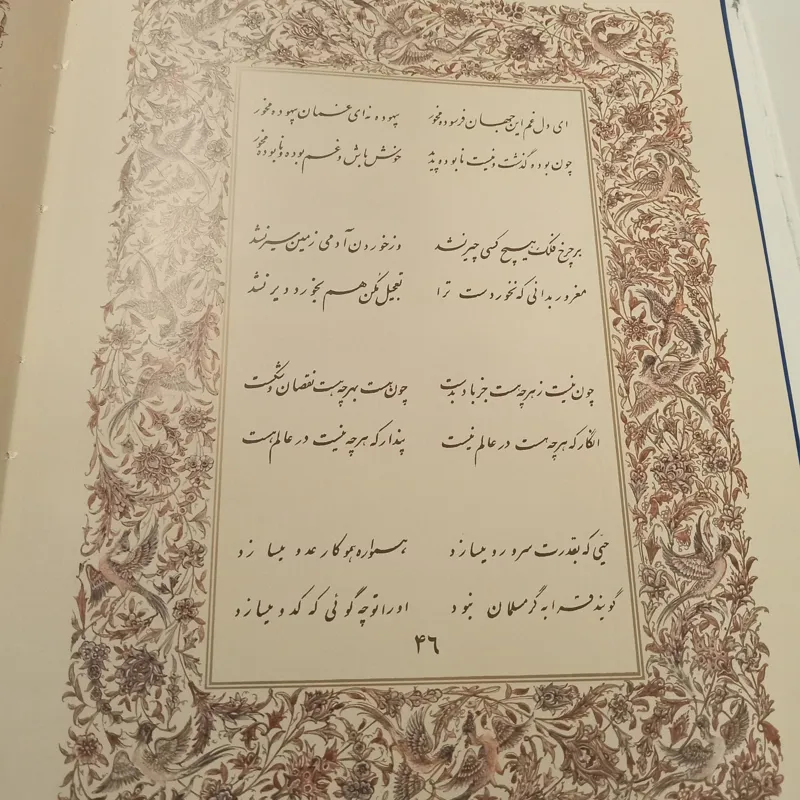 ای دل غم این جهان فرسوده مخور بیهوده نه‌ای غمان بیهوده مخور
چون بوده گذشت و نیست نابوده پدید خوش باش و غم بوده و نابوده مخور
بر چرخ فلک هیچ کسی چیر نشد وز خوردن آدمی زمین سیر نشد
مغرور بدانی که نخوردست ترا تعجیل مکن هم بخورد دیر نشد
چون نیست ز هرچه هست جز باد بدست چون هست بهرچه هست نقصان و شکست
انگار که هرچه هست در عالم نیست پندار که هرچه نیست در عالم هست
حیّی که بقدرت سر و رو میسازد همواره همو کار عدو میسازد
گویند قرابه گر مسلمان نبود او را تو چه گوئی که کدو میسازد
۴۶